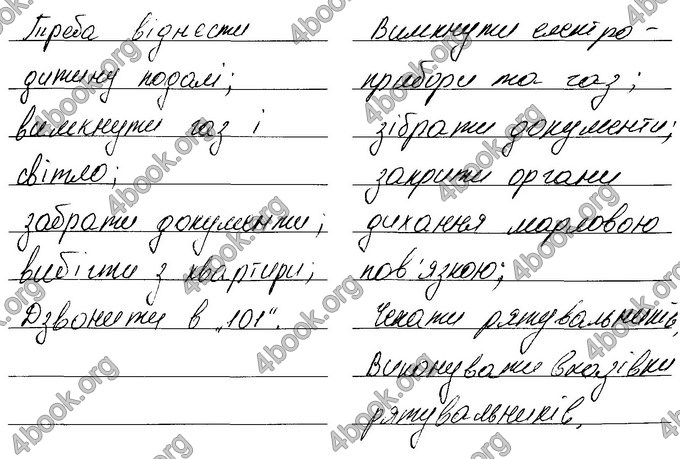 Треба віднести
дитину подалі;
вимкнути газ і
світло;
забрати документи;
вибігти з квартири;
Дзвонити в „101“.
Вимкнути електро-
прибори та газ;
зібрати документи;
закрити органи
дихання марловою
пов'язкою;
Чекати рятувальників,
Виконувати вказівки
рятувальників.
4book.org